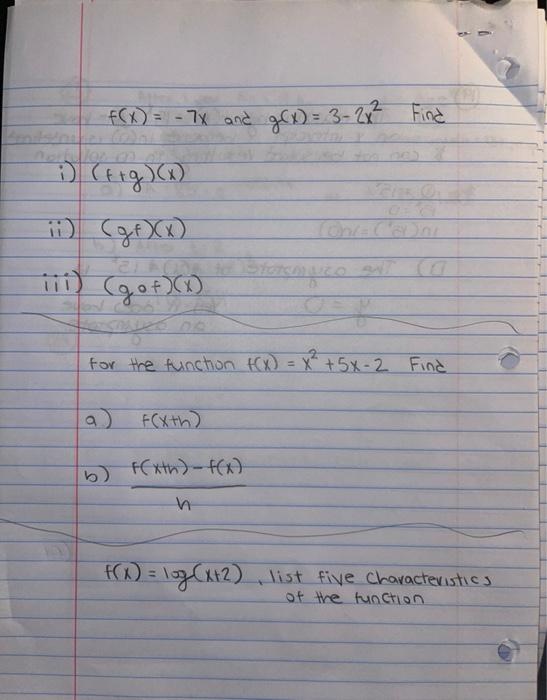 f(x) = -7x and g(x) = 3-2x² Find
i) (f+g)(x)
ii) (gf)(x)
iii) (gof)(x)
For the function f(x) = x² +5x-2 Find
a) f(x+h)
b) f(x+h)-f(x)
h
f(x) = log(x+2), list five characteristics
of the function